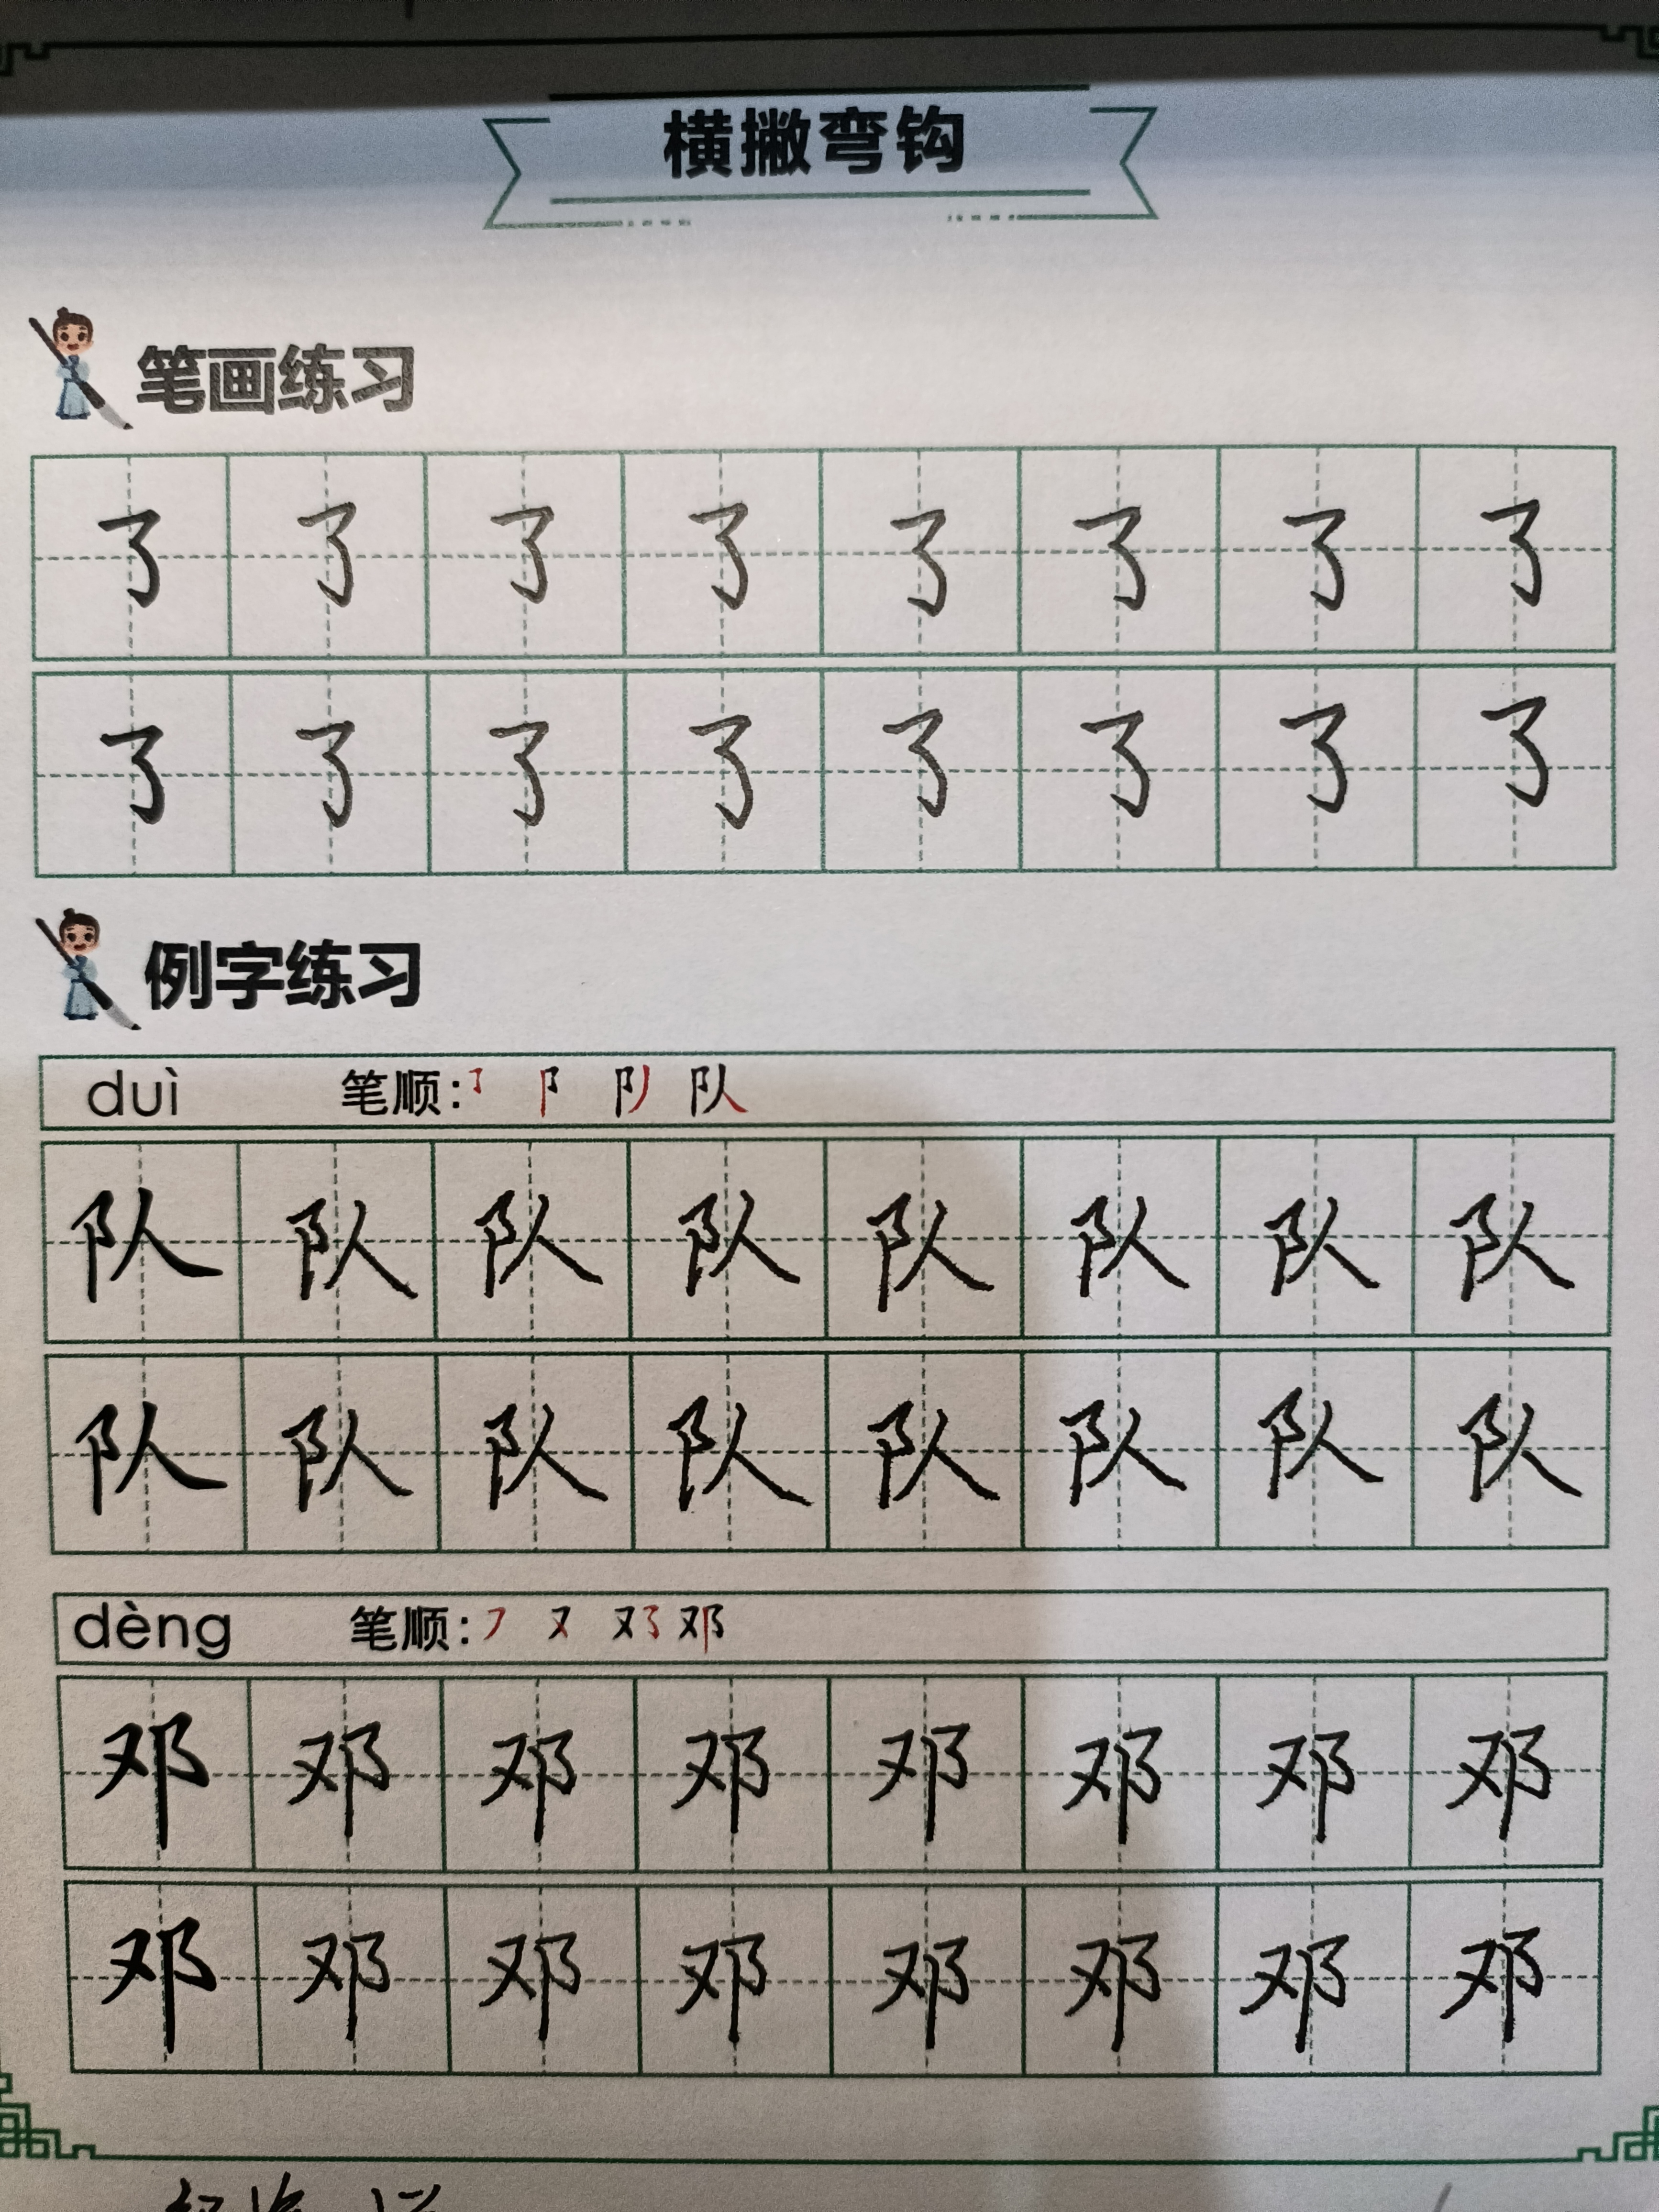 横撇弯钩
笔画练习
㇌ ㇌ ㇌ ㇌ ㇌ ㇌ ㇌ ㇌
㇌ ㇌ ㇌ ㇌ ㇌ ㇌ ㇌ ㇌
例字练习
duì 笔顺: ㇌ 阝 队
队 队 队 队 队 队 队 队
队 队 队 队 队 队 队 队
dèng 笔顺: ㇇ 又 邓
邓 邓 邓 邓 邓 邓 邓 邓
邓 邓 邓 邓 邓 邓 邓 邓